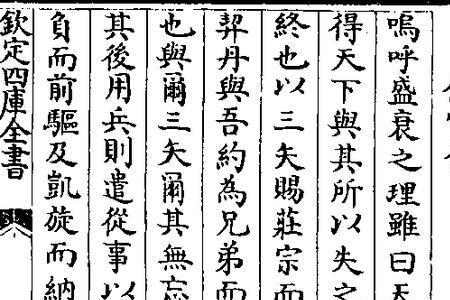 嗚呼盛衰之理雖曰天
得天下與其所以失之
終也以三矢賜莊宗而
契丹與吾約為兄弟而
也與爾三矢爾其無忘
其後用兵則遣從事以
負而前驅及凱旋而納
欽定四庫全書